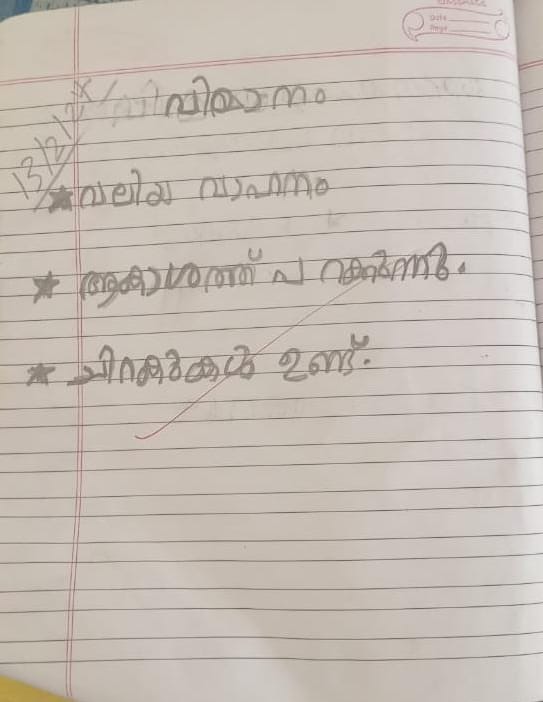 Date
Page
വിമാനം
13/2/2
★ വലിയ വാഹനം
★ ആകാശത്ത് പറക്കുന്നു.
★ ചിറകുകൾ ഉണ്ട്.